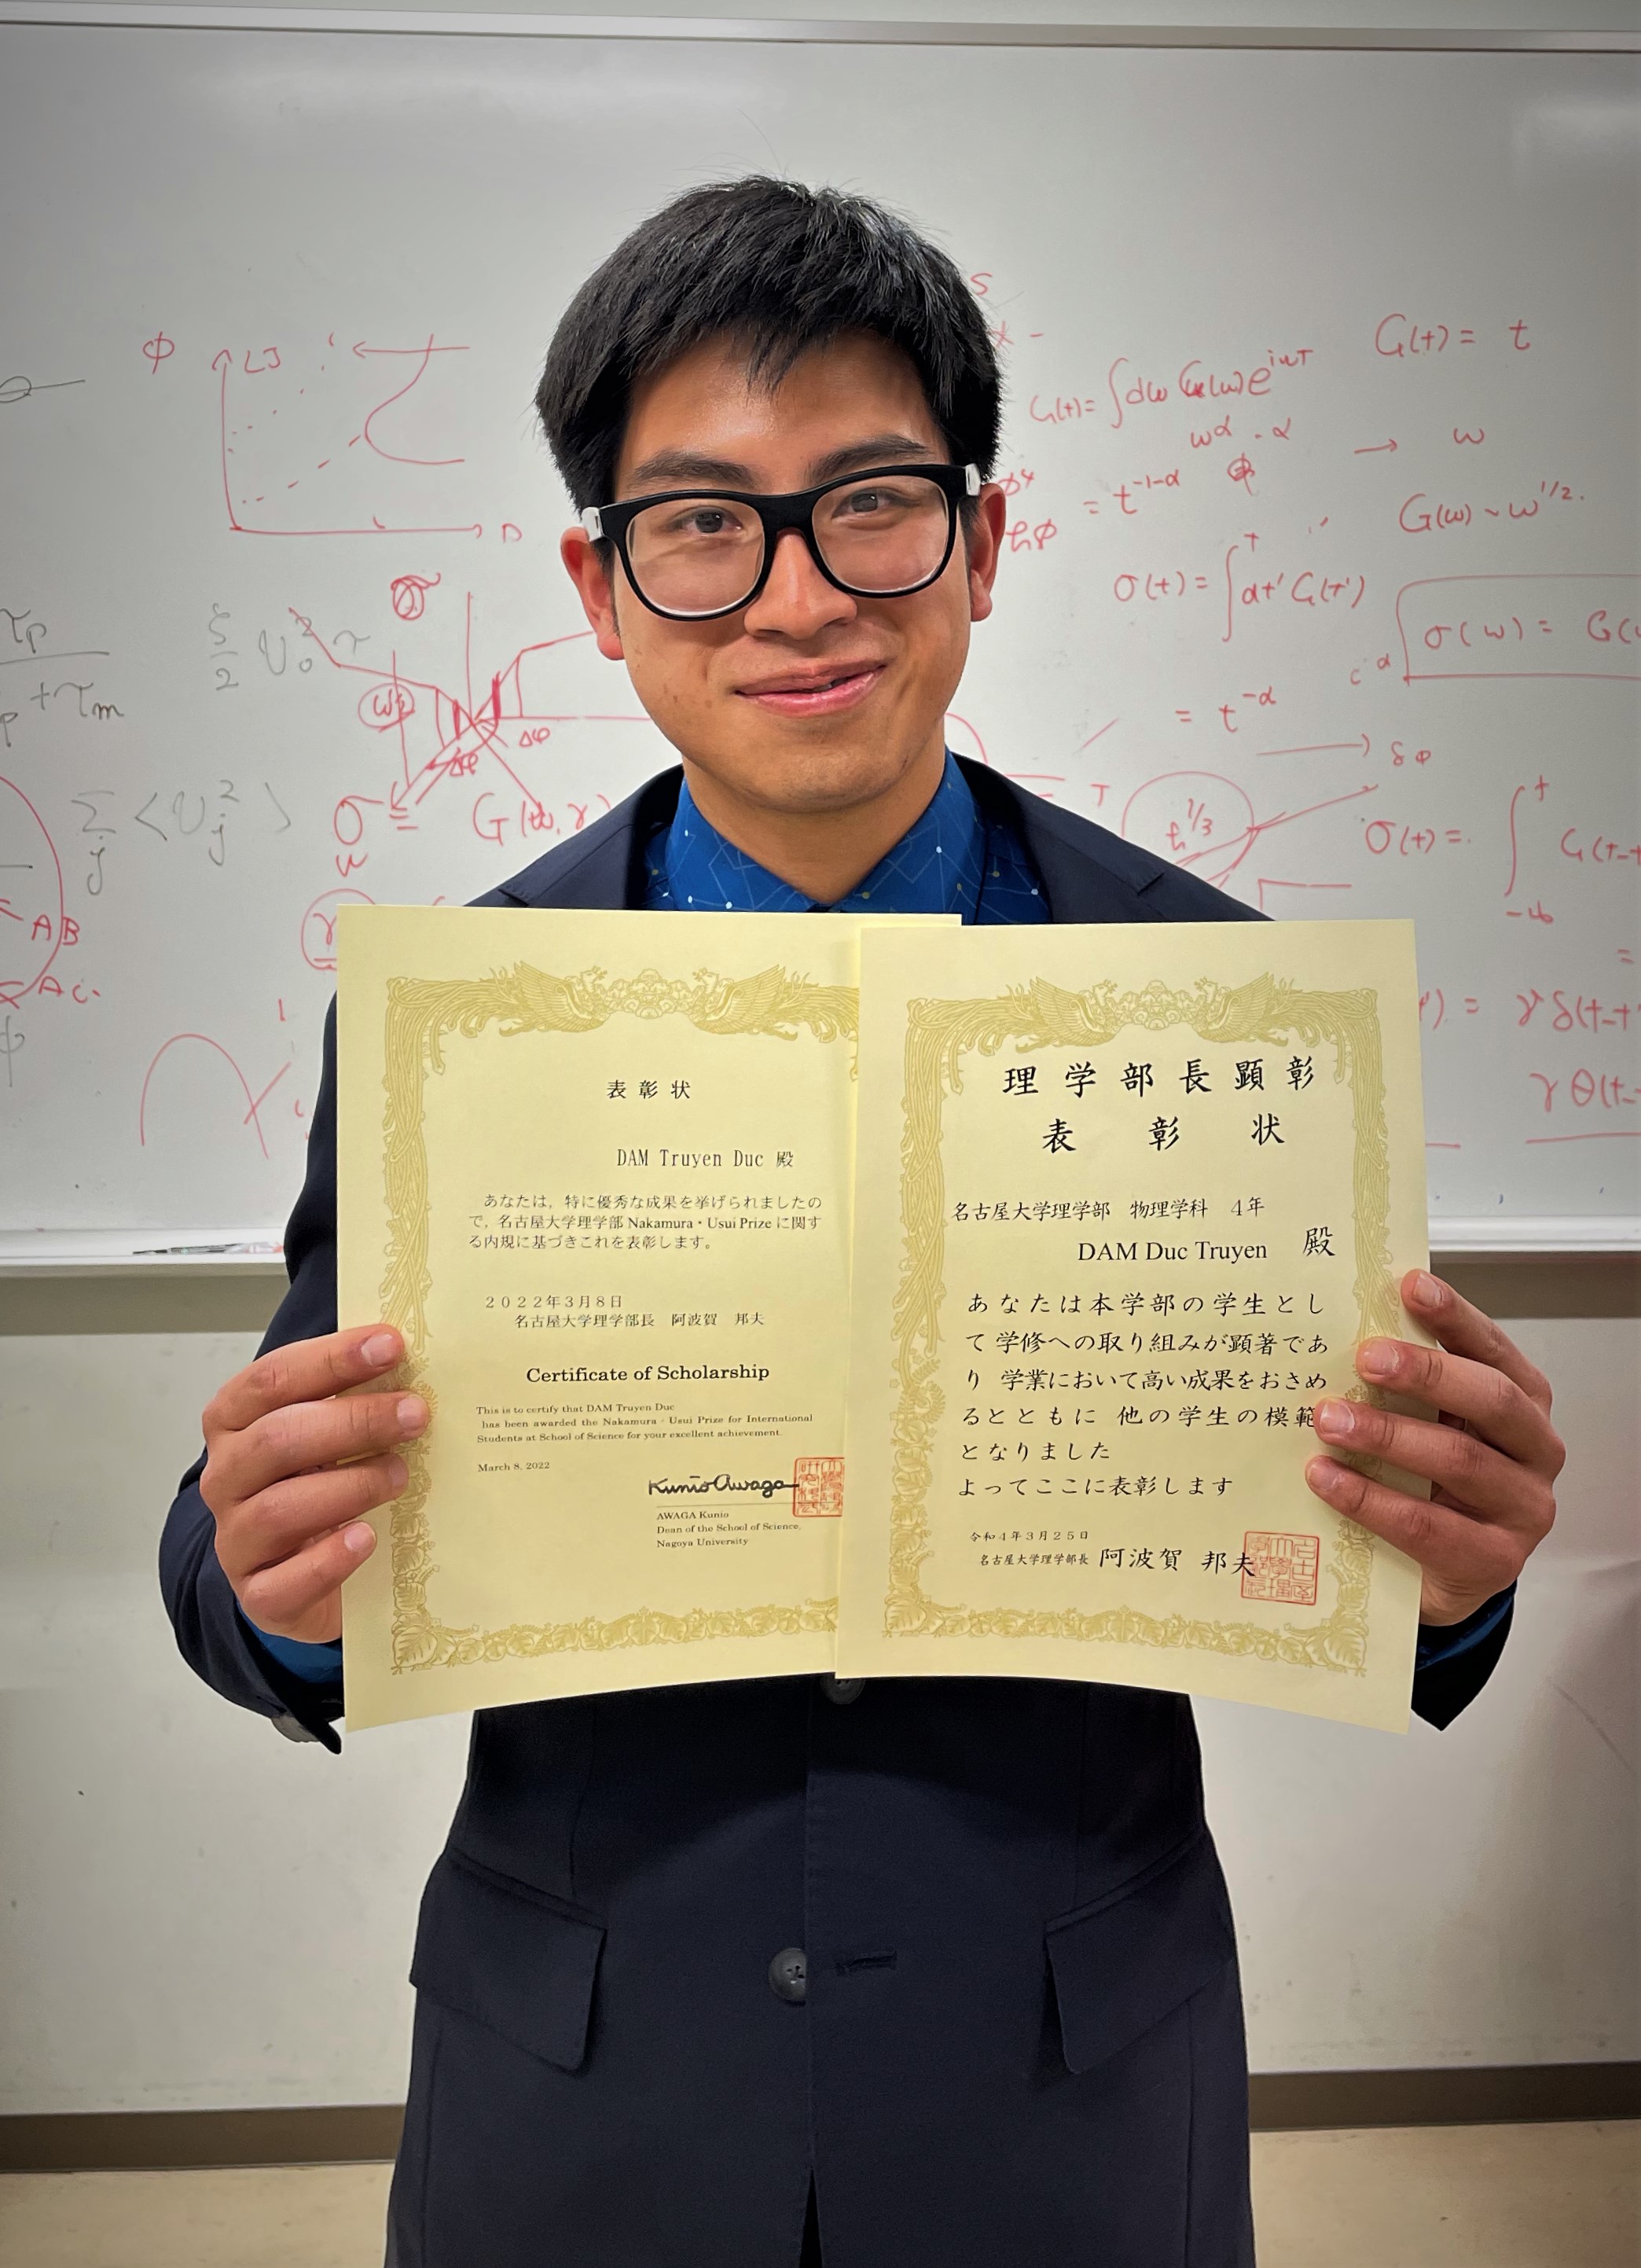 φ
D
G(t) = t
G(t) = ∫dω G(ω)e^{iωt}
ω^α · α → ω
= t^{-1-α}
G(ω) ~ ω^{1/2}.
ħφ
σ(t) = ∫^t dt' G(t')
σ(ω) = G(
τp
+ τm
5/2 U₀² τ
Δφ
Δφ
= t^{-α}
δφ
Σ_j <U_j²>
σ =
T
t^{1/3}
σ(t) = ∫
AB
γδ(t-t'
γθ(t-
表彰状
DAM Truyen Duc 殿
あなたは，特に優秀な成果を挙げられましたの
で，名古屋大学理学部 Nakamura・Usui Prize に関す
る内規に基づきこれを表彰します。
２０２２年３月８日
名古屋大学理学部長　阿波賀　邦夫
Certificate of Scholarship
This is to certify that DAM Truyen Duc
has been awarded the Nakamura・Usui Prize for International
Students at School of Science for your excellent achievement.
March 8, 2022
Kunio Awaga
AWAGA Kunio
Dean of the School of Science,
Nagoya University
理学部長顕彰
表彰状
名古屋大学理学部　物理学科　4年
DAM Duc Truyen 殿
あなたは本学部の学生とし
て 学修への取り組みが顕著であ
り 学業において高い成果をおさめ
るとともに 他の学生の模範
となりました
よってここに表彰します
令和４年３月２５日
名古屋大学理学部長 阿波賀 邦夫